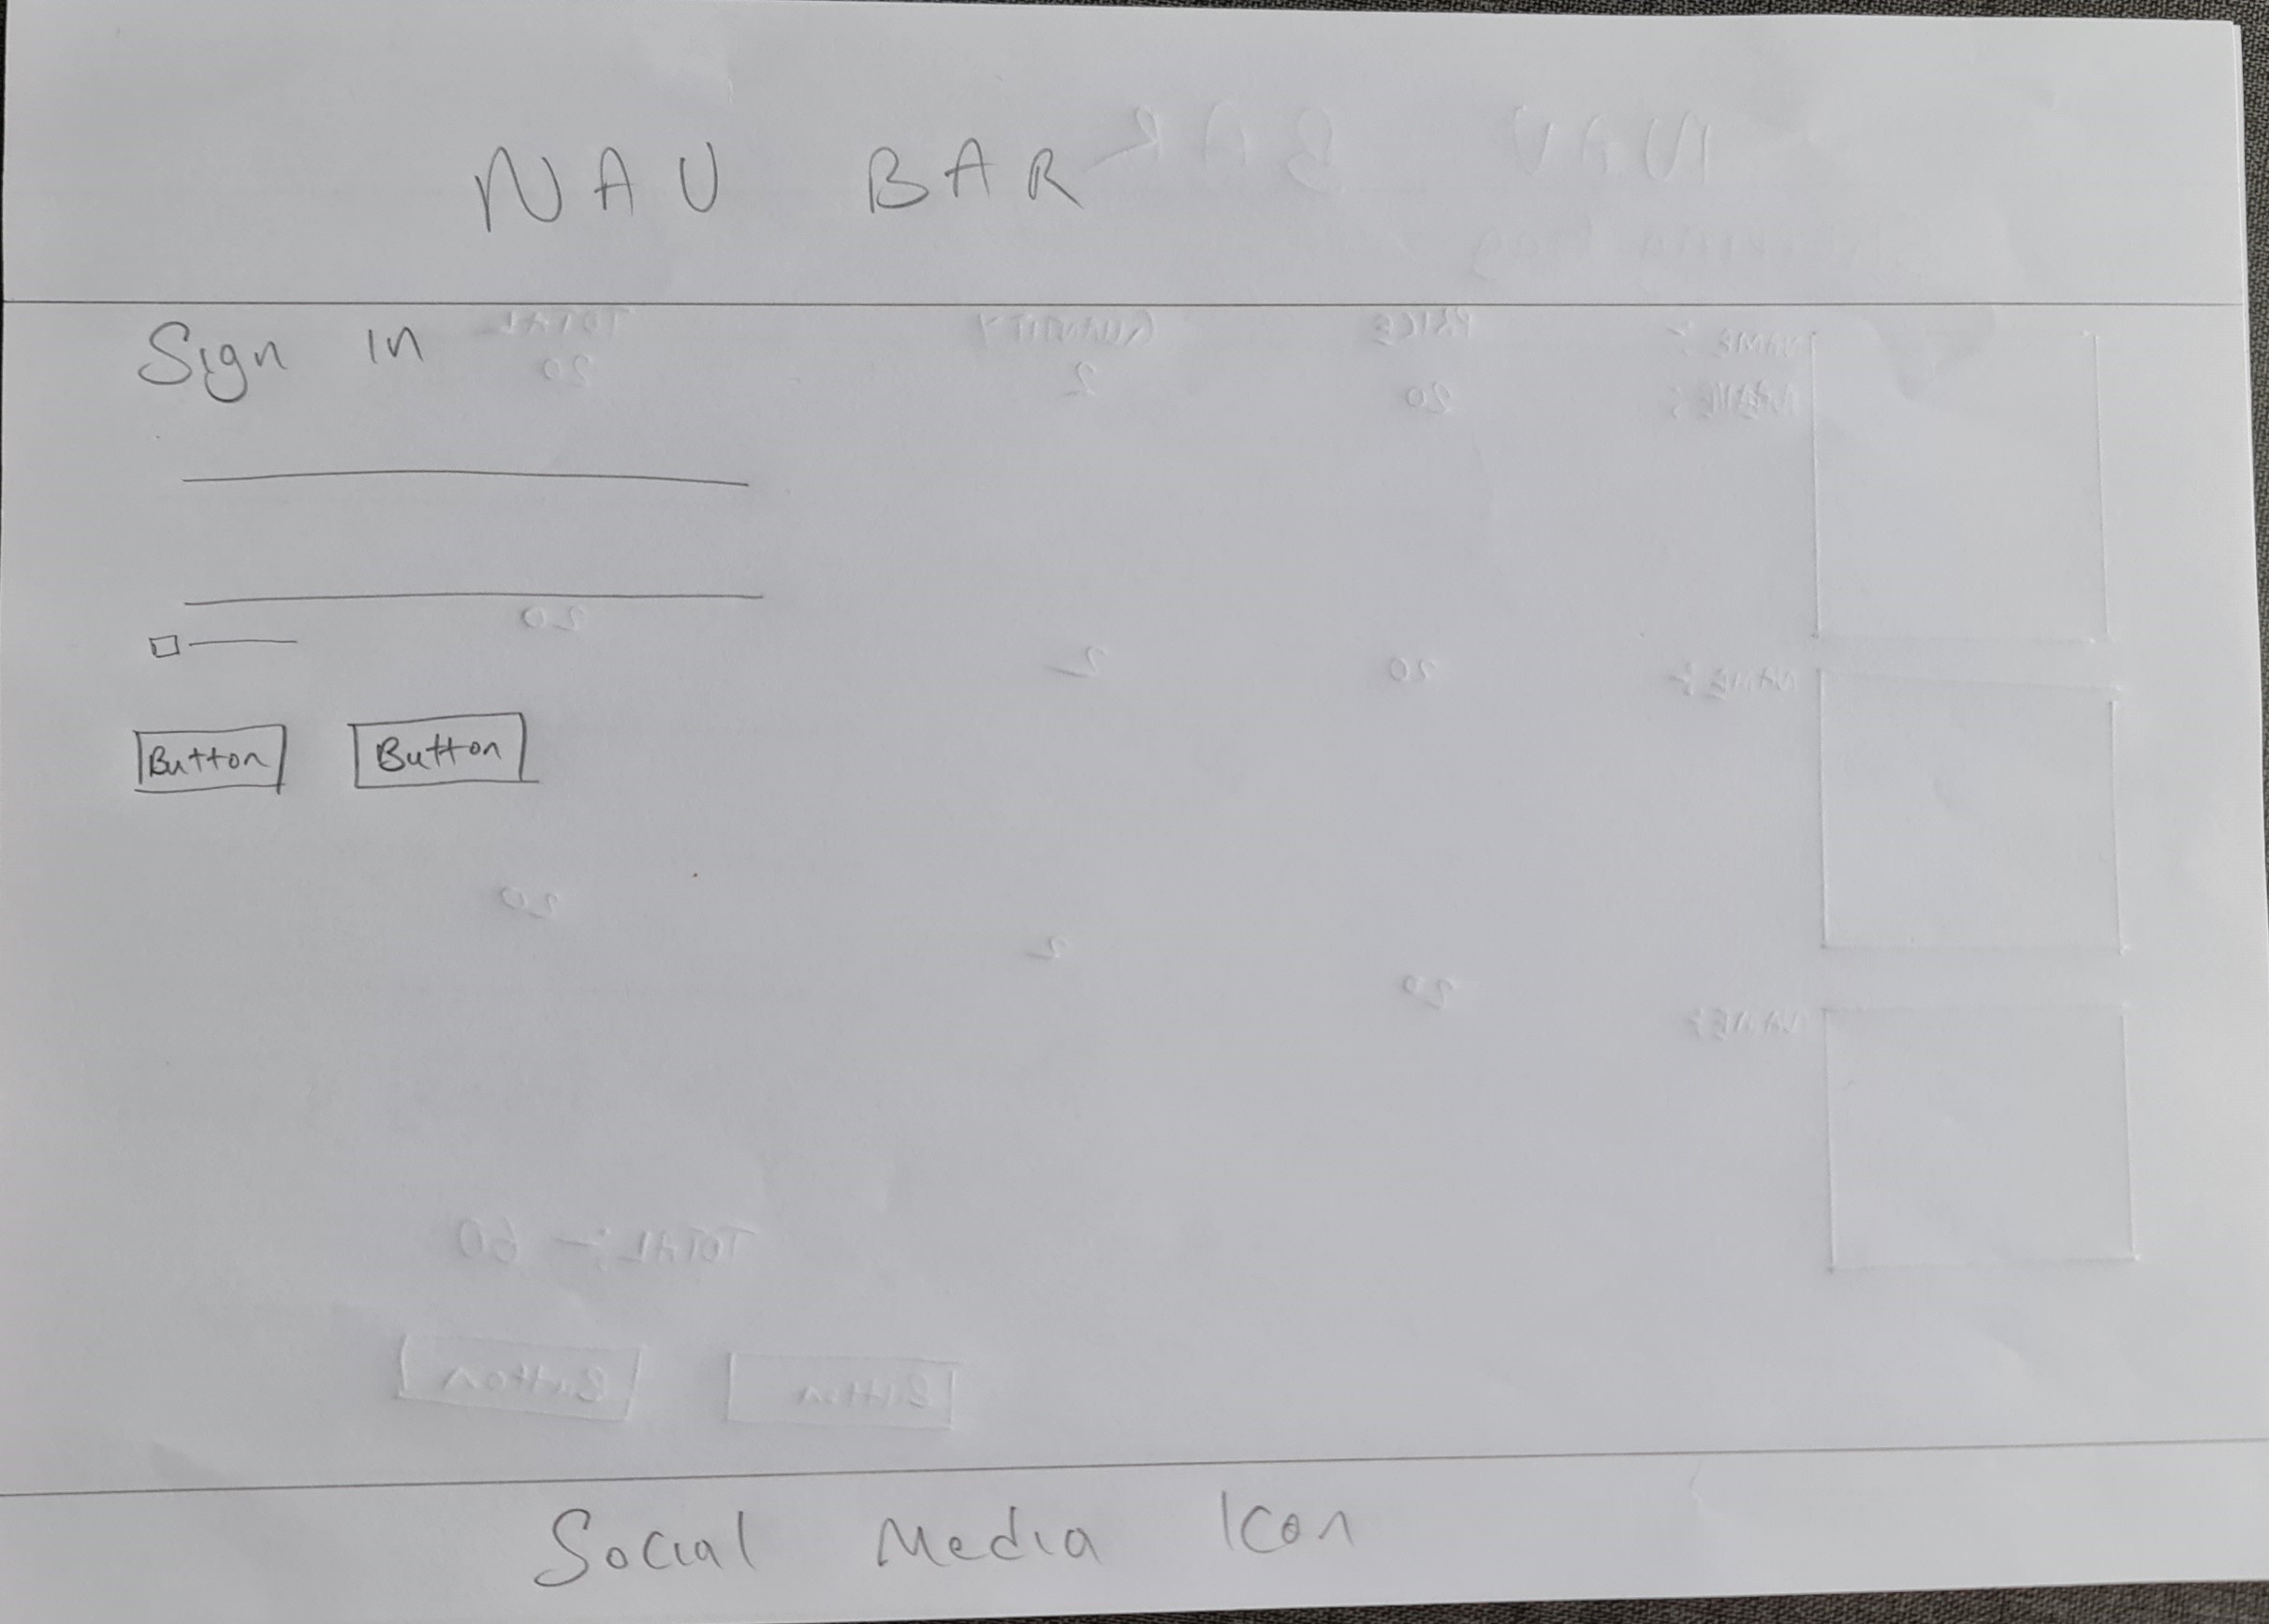 NAV BAR
Sign in
Button Button
Social Media Icon